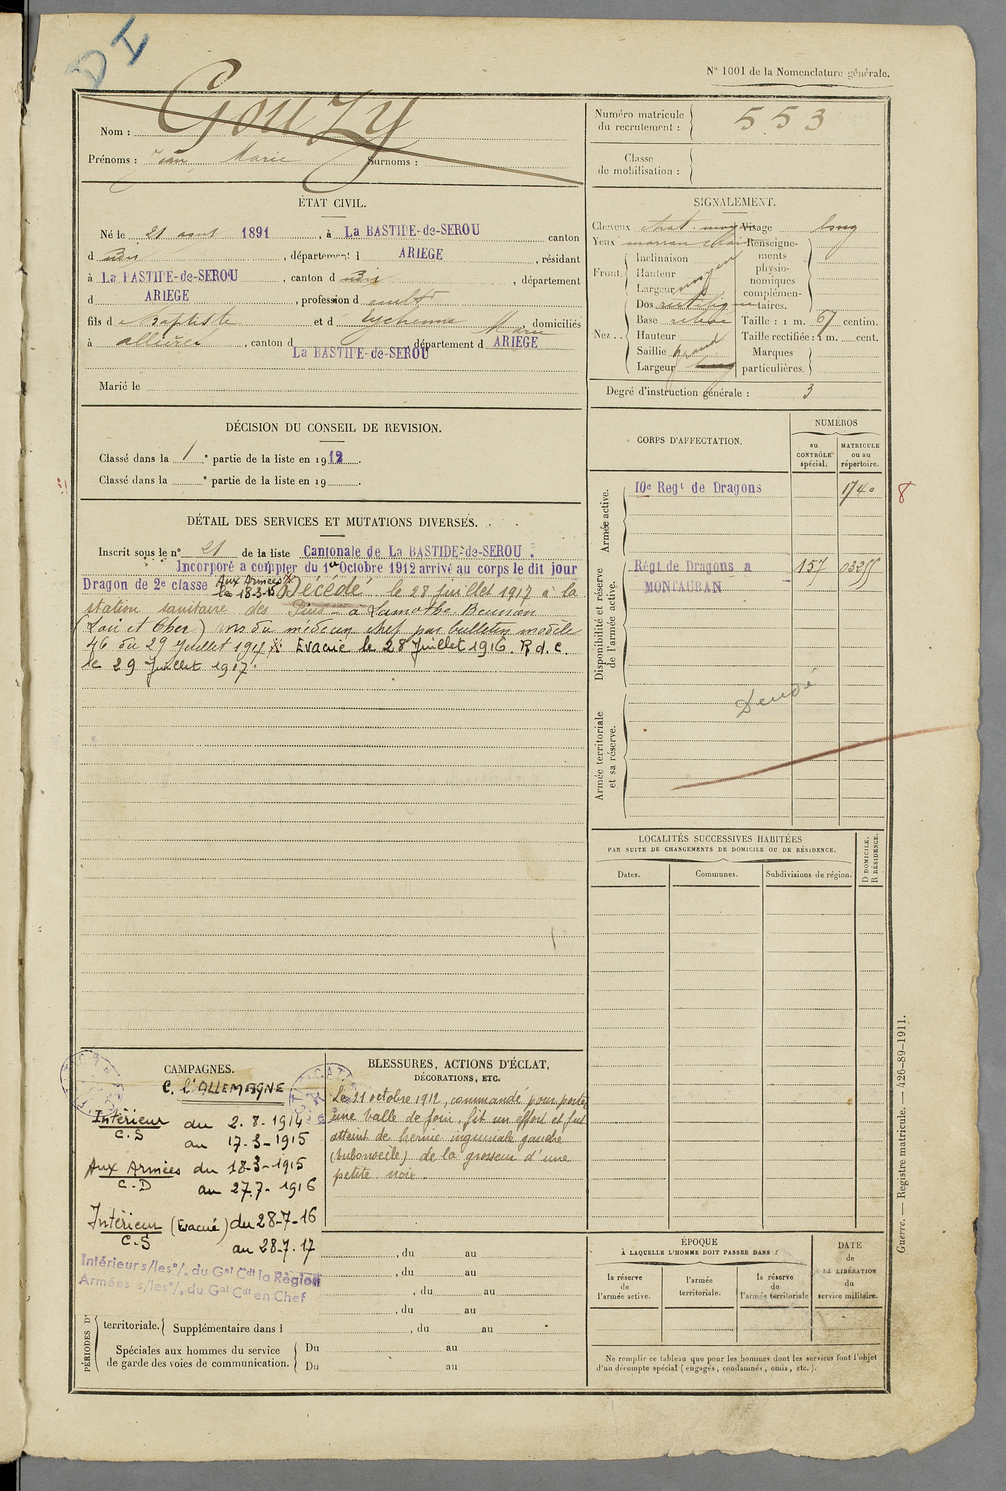 DI
N° 1001 de la Nomenclature générale.
Nom : Gouzy
Prénoms : Jean Marie Surnoms :
Numéro matricule du recrutement : 553
Classe de mobilisation :
ÉTAT CIVIL.
Né le 21 août 1891, à La BASTIDE-de-SEROU canton
d dudit, département d ARIEGE, résidant
à La BASTIDE-de-SEROU, canton d dudit, département
d ARIEGE, profession d cultr
fils d Baptiste et d Eychenne Marie, domiciliés
à allières, canton d La BASTIDE-de-SEROU, département d ARIEGE
Marié le
SIGNALEMENT.
Cheveux chat. moy Visage long
Yeux marron clair Renseigne-
ments
physio-
nomiques
complémen-
taires.
Front. Inclinaison
Hauteur
Largeur moyen
Nez . . Dos rectiligne
Base relevé
Hauteur
Saillie grand
Largeur
Taille : 1 m. 67 centim.
Taille rectifiée : 1 m. cent.
Marques
particulières.
Degré d'instruction générale : 3
DÉCISION DU CONSEIL DE REVISION.
Classé dans la 1e partie de la liste en 1912.
Classé dans la e partie de la liste en 19 .
DÉTAIL DES SERVICES ET MUTATIONS DIVERSES.
Inscrit sous le n° 21 de la liste Cantonale de La BASTIDE-de-SEROU.
Incorporé a compter du 1er Octobre 1912 arrivé au corps le dit jour
Dragon de 2e classe Aux Armées le 18-3-15 Décédé le 28 juillet 1917 à la
station sanitaire des Pins à Lamothe Beuvron
(Loir et Cher) avis du médecin chef par bulletin modèle
46 du 29 Juillet 1917 Evacué le 28 Juillet 1916. R.d.C.
le 29 Juillet 1917.
CORPS D'AFFECTATION.
NUMÉROS
au CONTRÔLE spécial.
MATRICULE ou au répertoire.
Armée active.
10e Regt de Dragons 1740
8
Disponibilité et réserve de l'armée active.
Régt de Dragons a MONTAUBAN 157 03255
Armée territoriale et sa réserve.
LOCALITÉS SUCCESSIVES HABITÉES
PAR SUITE DE CHANGEMENTS DE DOMICILE OU DE RÉSIDENCE.
Dates. Communes. Subdivisions de région.
D DOMICILE.
R RÉSIDENCE.
CAMPAGNES.
C. l'ALLEMAGNE
Intérieur du 2.8.1914
C.S au 17-3-1915
Aux Armées du 18-3-1915
C.D au 27.7-1916
Intérieur (Evacué) du 28-7-16
C.S au 28.7.17
Intérieur s/les °/. du Gal Cdt la Région
Armées s/les °/. du Gal Cdt en Chef
BLESSURES, ACTIONS D'ÉCLAT,
DÉCORATIONS, ETC.
Le 21 octobre 1912, commandé pour porter
une balle de foin, fit un effort et fut
atteint de hernie inguinale gauche
(bubonocèle) de la grosseur d'une
petite noix.
, du au
, du au
, du au
, du au
PÉRIODES D'
territoriale. Supplémentaire dans l , du au
Spéciales aux hommes du service
de garde des voies de communication. Du au
Du au
ÉPOQUE
À LAQUELLE L'HOMME DOIT PASSER DANS :
la réserve de l'armée active.
l'armée territoriale.
la réserve de l'armée territoriale
DATE de LA LIBÉRATION du service militaire.
Ne remplir ce tableau que pour les hommes dont les services font l'objet
d'un décompte spécial (engagés, condamnés, omis, etc.).
Guerre. — Registre matricule. — 426-89-1911.